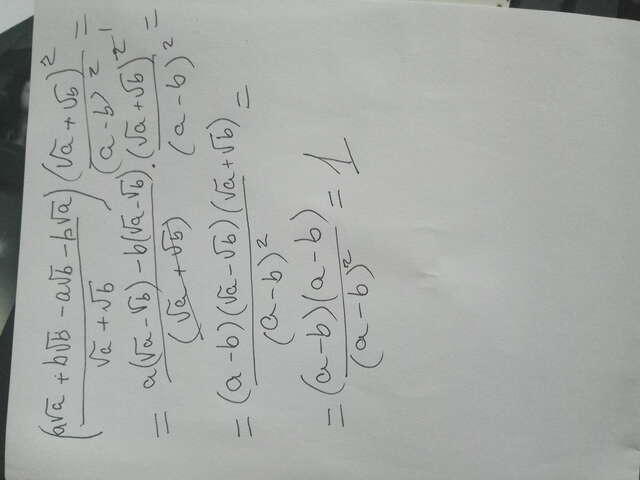 (a√a + b√b - a√b - b√a)/(√a + √b) (√a + √b)²/(a - b)² =
= a(√a - √b) - b(√a - √b)/(√a + √b) · (√a + √b)²⁻¹/(a - b)² =
= (a - b)(√a - √b)(√a + √b)/(a - b)² =
= (a - b)(a - b)/(a - b)² = 1